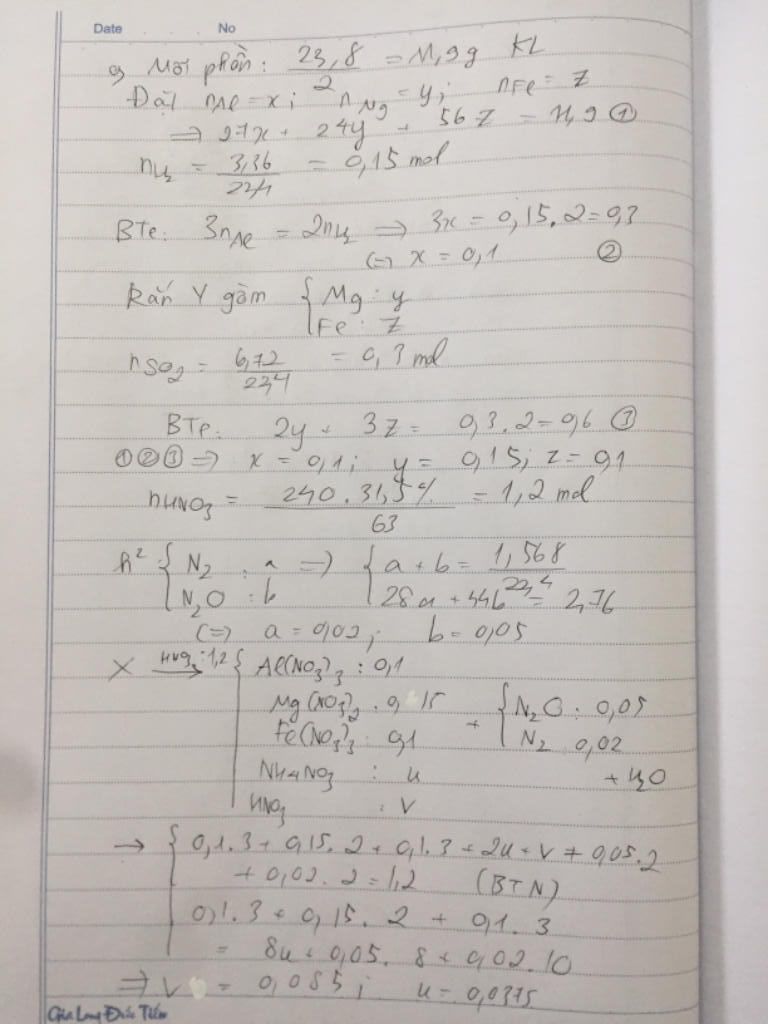 Date No
a) Mỗi phần: 23,8/2 = 11,9g KL
Đặt nAl = x; nMg = y; nFe = z
=> 27x + 24y + 56z = 11,9 ①
nH2 = 3,36/22,4 = 0,15 mol
BTe: 3nAl = 2nH2 => 3x = 0,15.2 = 0,3
(=) x = 0,1 ②
Rắn Y gồm { Mg : y
Fe : z
nSO2 = 6,72/22,4 = 0,3 mol
BTe: 2y + 3z = 0,3.2 = 0,6 ③
①②③ => x = 0,1; y = 0,15; z = 0,1
nHNO3 = 240.31,5%/63 = 1,2 mol
h² { N2 : a => { a + b = 1,568/22,4
N2O : b 28a + 44b = 2,76
(=) a = 0,02; b = 0,05
X HNO3:1,2 → { Al(NO3)3 : 0,1
Mg(NO3)2 : 0,15 + { N2O : 0,05
Fe(NO3)3 : 0,1 N2 0,02
NH4NO3 : u + H2O
HNO3 : v
→ { 0,1.3 + 0,15.2 + 0,1.3 + 2u + v + 0,05.2
+ 0,02.2 = 1,2 (BTN)
0,1.3 + 0,15.2 + 0,1.3
= 8u + 0,05.8 + 0,02.10
=> v = 0,085; u = 0,0375
Gia Long Đức Tiến